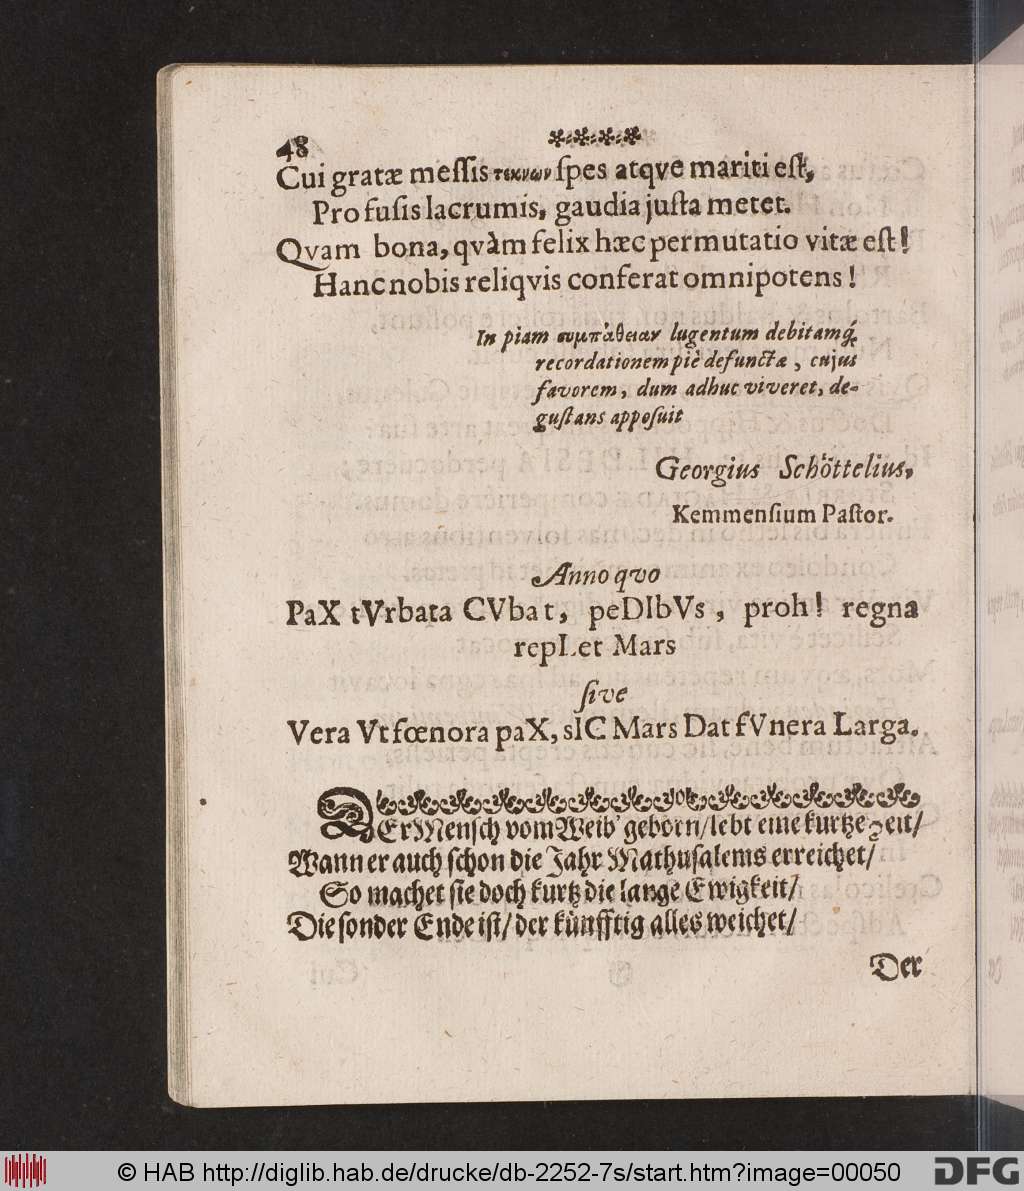 48
Cui gratæ messis τεκνων spes atqve mariti est,
Pro fusis lacrumis, gaudia justa metet.
Qvam bona, qvàm felix hæc permutatio vitæ est!
Hanc nobis reliqvis conferat omnipotens!
In piam συμπάθειαν lugentum debitamq́;
recordationem piè defunctæ, cujus
favorem, dum adhuc viveret, de-
gustans apposuit
Georgius Schöttelius,
Kemmensium Pastor.
Anno qvo
PaX tVrbata CVbat, peDIbVs, proh! regna
repLet Mars
sive
Vera Vt fœnora paX, sIC Mars Dat fVnera Larga.
DEr Mensch vom Weib' geborn/lebt eine kurtze Zeit/
Wann er auch schon die Jahr Mathusalems erreichet/
So machet sie doch kurtz die lange Ewigkeit/
Die sonder Ende ist/ der künfftig alles weichet/
Der
© HAB http://diglib.hab.de/drucke/db-2252-7s/start.htm?image=00050
DFG